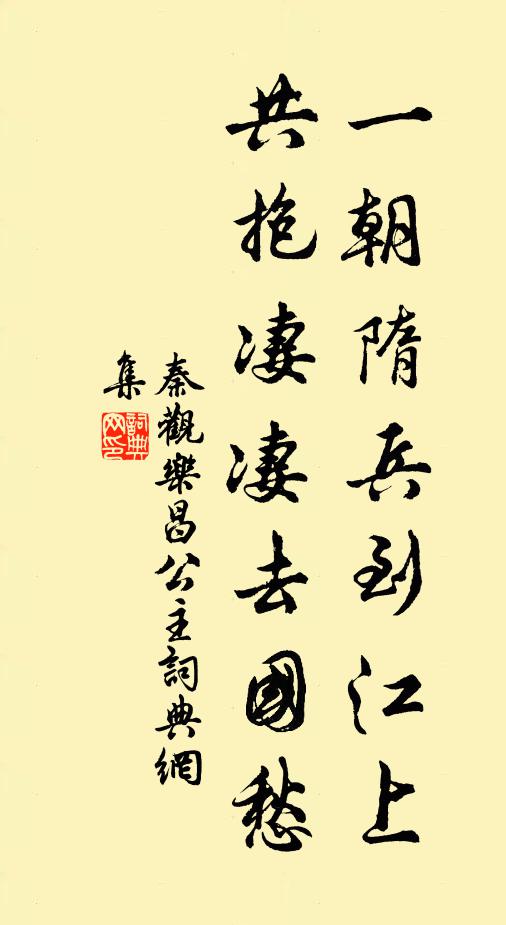 一朝隋兵到江上
共抱凄凄去國愁
秦觀樂昌公主詞典網
集
詞典網印